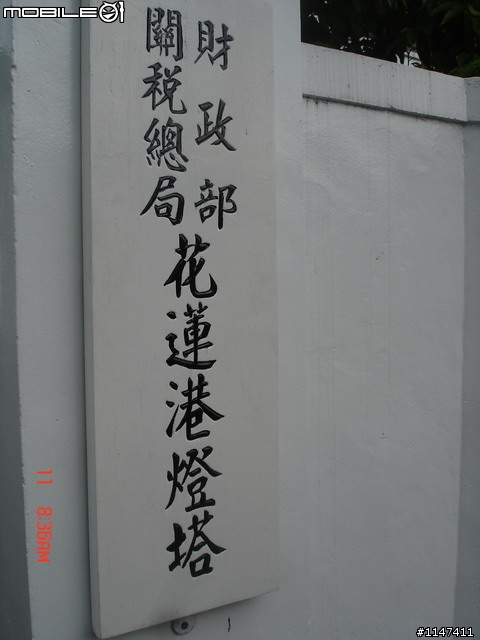 MOBILE01
財政部
關稅總局
花蓮港燈塔
11 8:36AM
#1147411